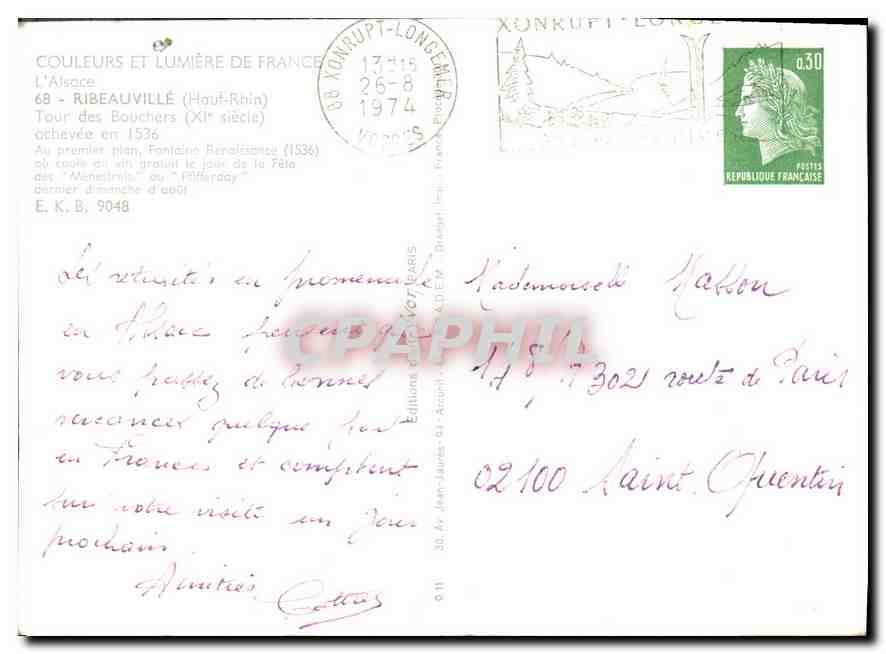 COULEURS ET LUMIÈRE DE FRANCE
L'Alsace
68 - RIBEAUVILLÉ (Haut-Rhin)
Tour des Bouchers (XIe siècle)
achevée en 1536
Au premier plan, Fontaine Renaissance (1536)
où coule du vin gratuit le jour de la Fête
des "Ménestrels" ou "Pfifferday"
dernier dimanche d'août
E. K. B. 9048
88 XONRUPT-LONGEMER
13H15
26-8
1974
VOSGES
XONRUPT-LONGE
0,30
POSTES
REPUBLIQUE FRANÇAISE
Les retraités en promenade
en Alsace pensent que
vous passez de bonnes
vacances quelque part
en France et comptent
sur votre visite un jour
prochain.
Amitiés
Mademoiselle Masson
302 route de Paris
02100 Saint Quentin
Editions d'Art Yvon PARIS
0 11 30, Av. Jean-Jaurès - 94 - Arcueil
CPAPHIL